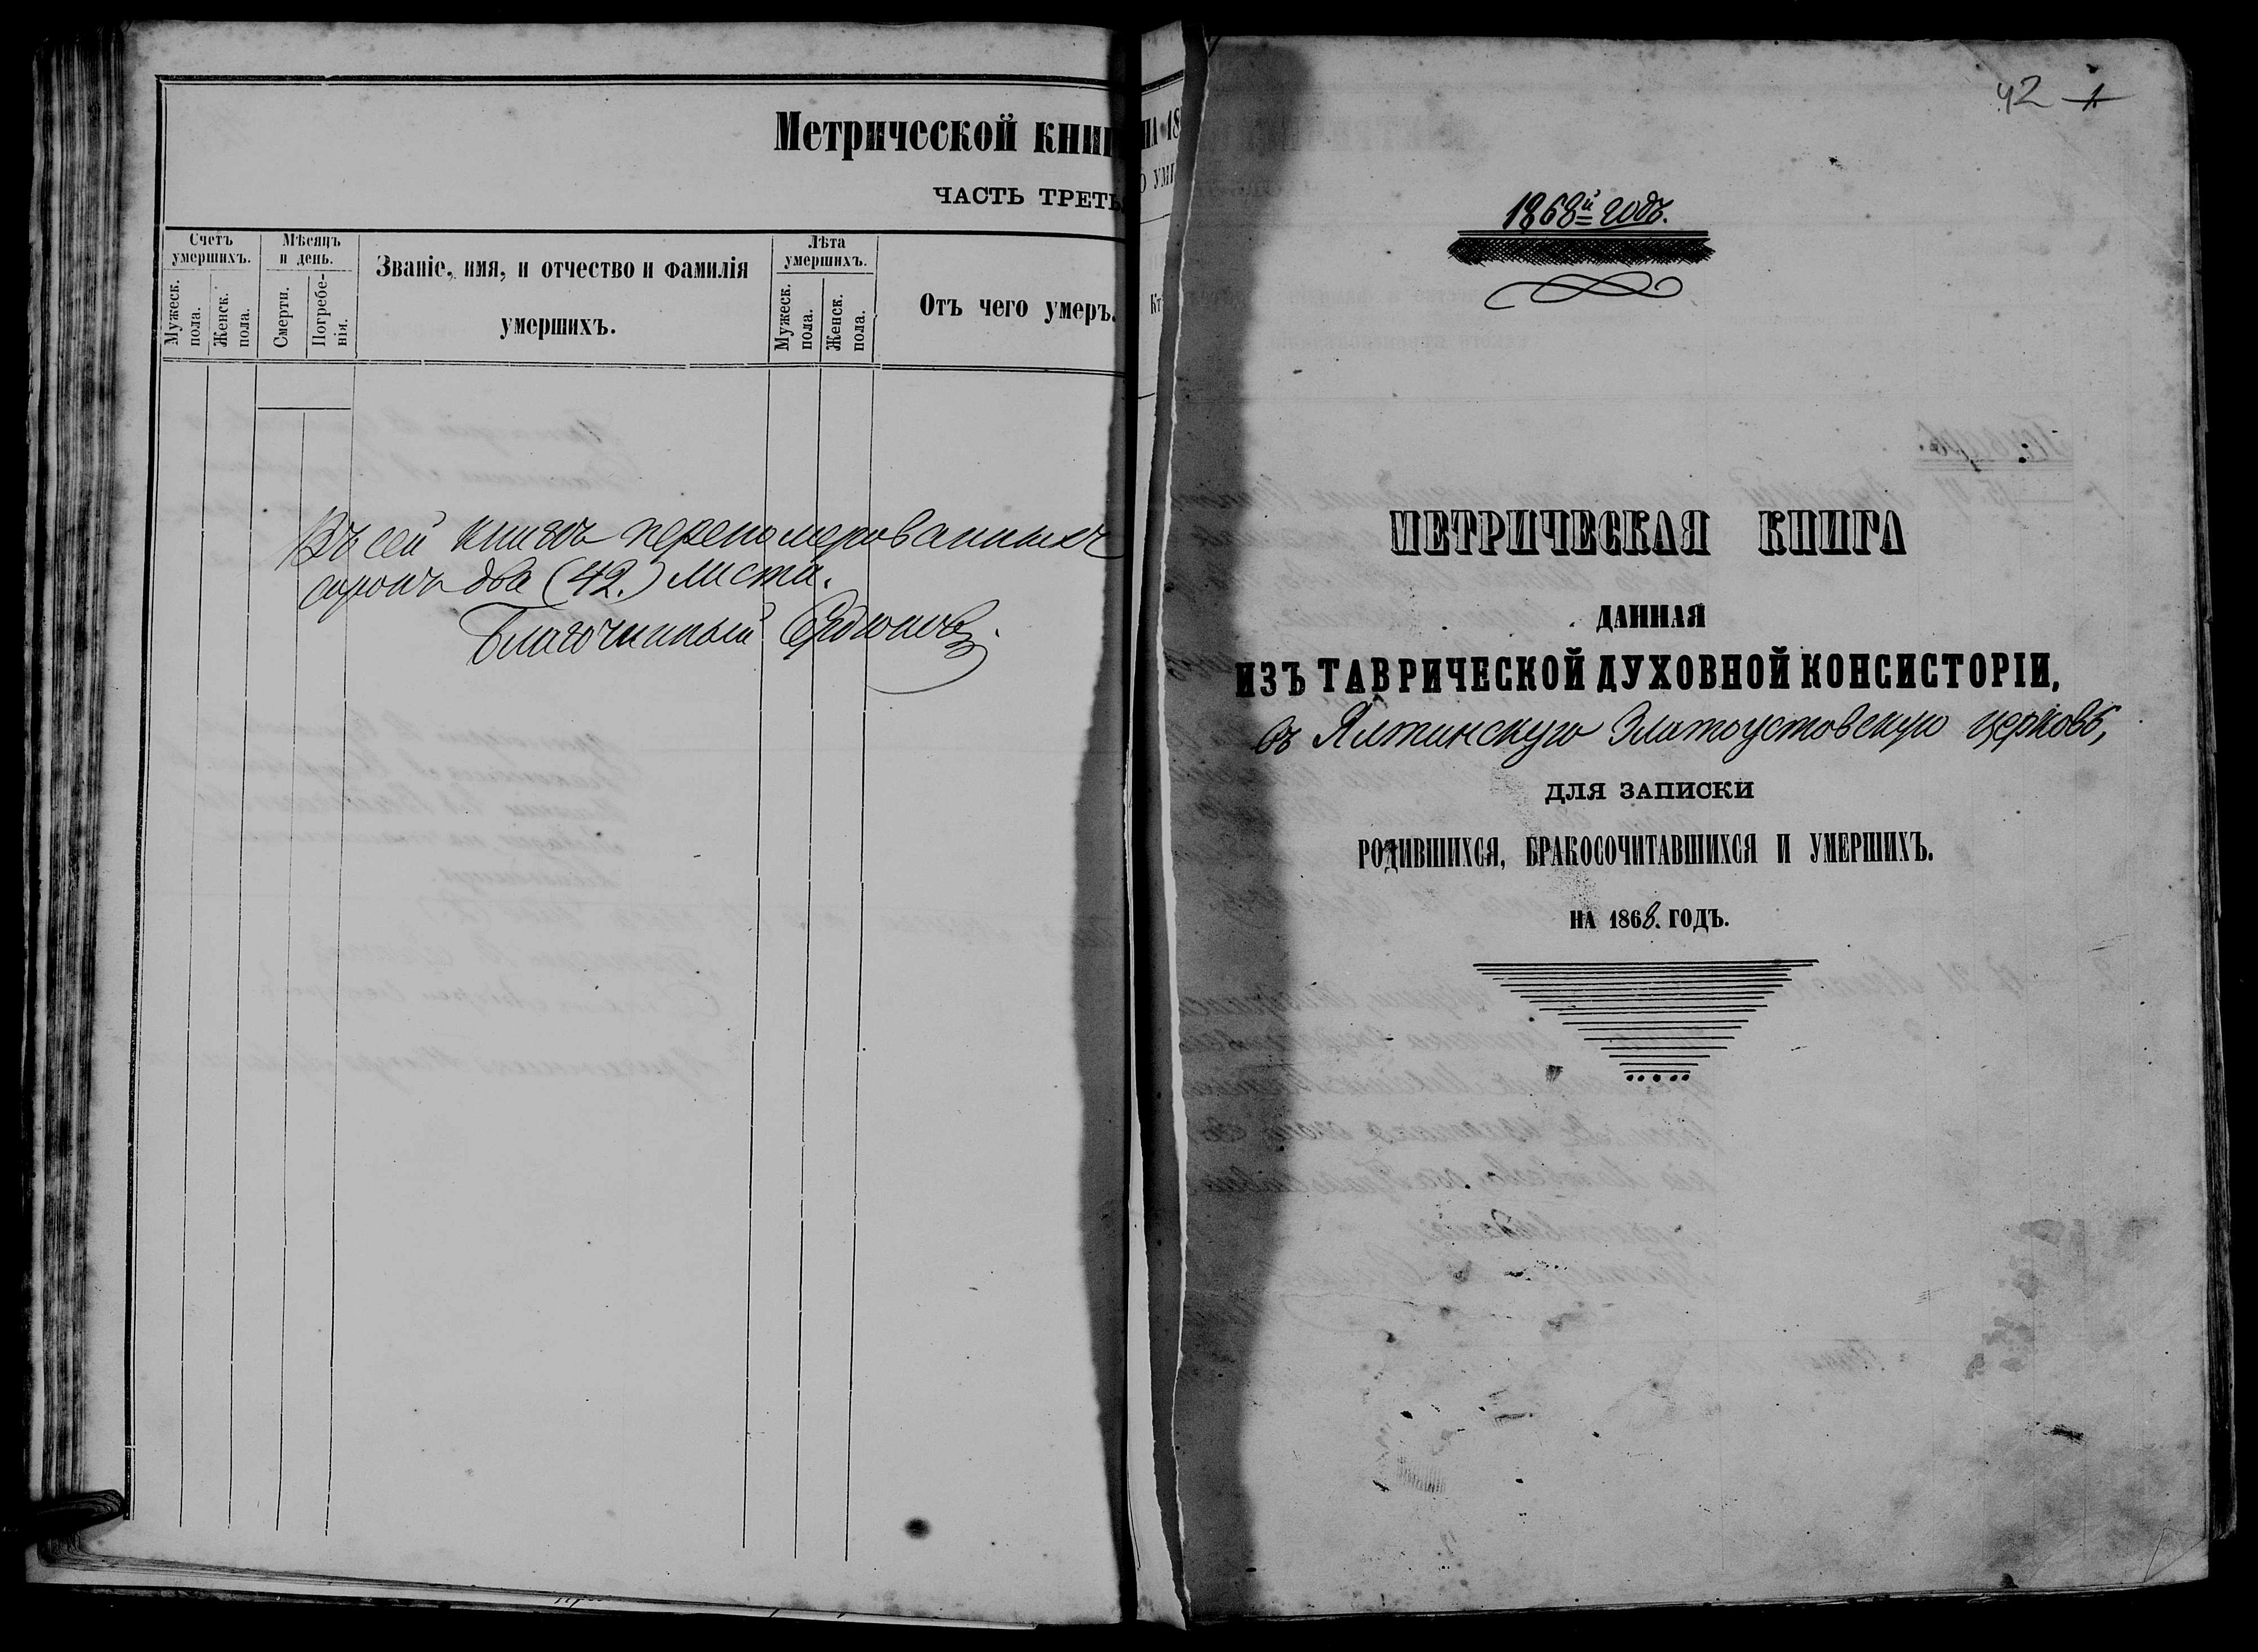 Метрической книг
ЧАСТЬ ТРЕТЬ
Счетъ умершихъ.
Мужеск. пола.
Женск. пола.
Мѣсяцъ и день.
Смерти.
Погребе-
нія.
Званіе, имя, и отчество и Фамилія
умершихъ.
Лѣта умершихъ.
Мужеск. пола.
Женск. пола.
Отъ чего умеръ.
Въ сей книгѣ перепомерованныхъ
сорокъ два (42.) листа.
Благочинный
НА 18
О УМ
Кт
42 1
1868й годъ.
МЕТРИЧЕСКАЯ КНИГА
ДАННАЯ
ИЗЪ ТАВРИЧЕСКОЙ ДУХОВНОЙ КОНСИСТОРІИ,
въ Ялтинскую Златоустовскую церковь,
ДЛЯ ЗАПИСКИ
РОДИВШИХСЯ, БРАКОСОЧИТАВШИХСЯ И УМЕРШИХЪ.
НА 1868. ГОДЪ.